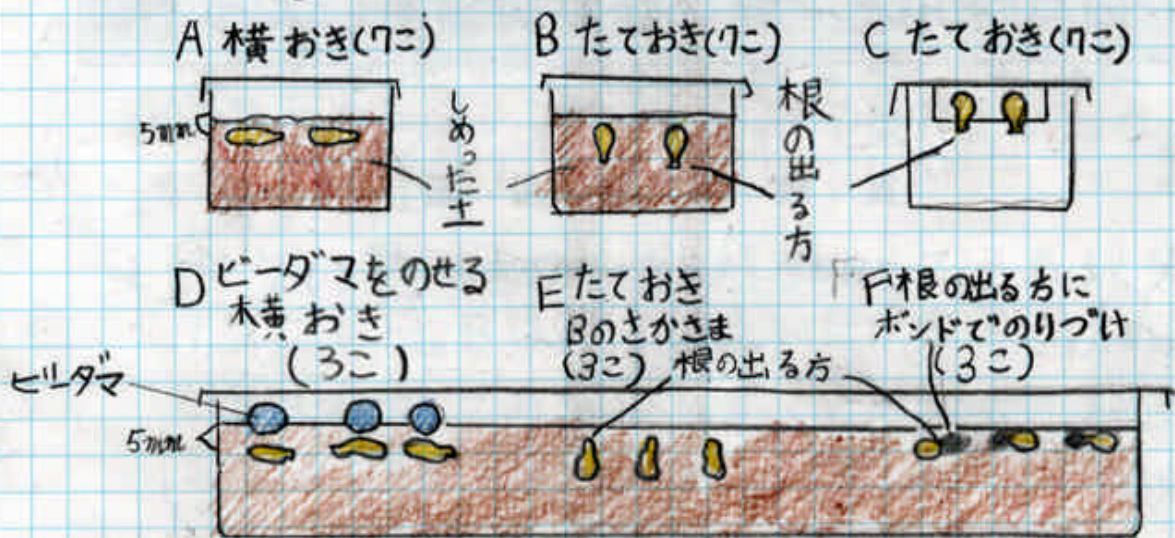 A 横おき(7こ)
B たておき(7こ)
C たておき(7こ)
5mm
しめった土
根の出る方
D ビーダマをのせる
横おき
(3こ)
E たておき
Bのさかさま
(3こ)
根の出る方
F 根の出る方に
ボンドでのりづけ
(3こ)
ビーダマ
5mm